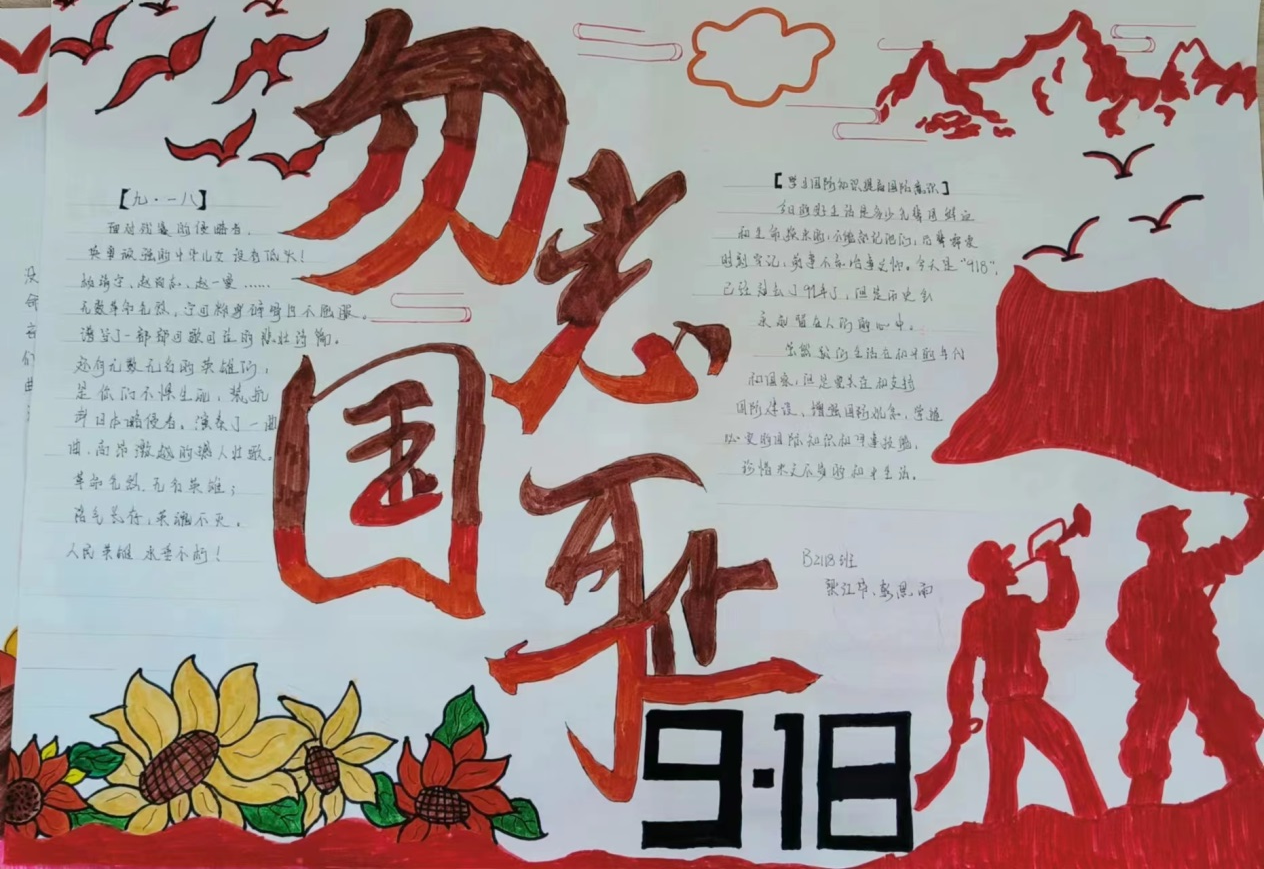 勿忘国耻
9·18
【九·一八】
面对残暴的侵略者，
英勇顽强的中华儿女没有低头！
杨靖宇、赵尚志、赵一曼……
无数革命先烈，宁可粉身碎骨且不屈服。
谱写了一部部可歌可泣的悲壮诗篇。
还有无数无名的英雄们，
是你们不惧生死，英勇
日本侵者。演奏了一曲
曲，高昂激越的人壮歌。
革命先烈、无名英雄；
浩气长存，英魂不灭。
人民英雄 永垂不朽！
【学习国防知识提高国防意识】
今日的好生活是多少先烈用鲜血
和生命换来的，不能忘记他们，
时刻牢记，今天是“918”，
已经过去了91年了，但是历史会
永远留在人们的心中。
虽然我们生活在和平的年代
和国家，但是要关注和支持
国防建设，增强国防观念，学习
必要的国防知识和军事技能，
珍惜来之不易的和平生活。
B2118班